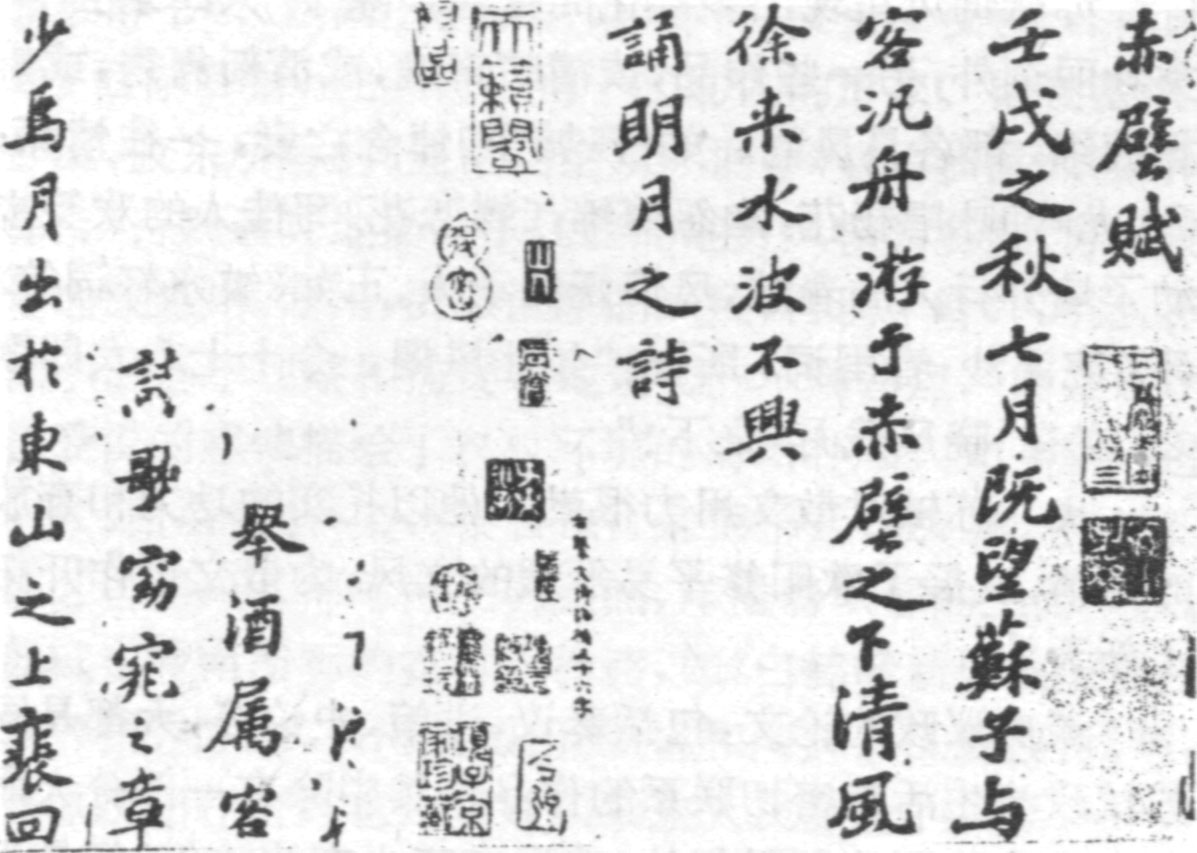 赤壁賦
壬戌之秋七月既望蘇子与
客汎舟游于赤壁之下清風
徐来水波不興
誦明月之詩
天籟閣
項子京家珍藏
舉酒属客
歌窈窕之章
少焉月出於東山之上裵回